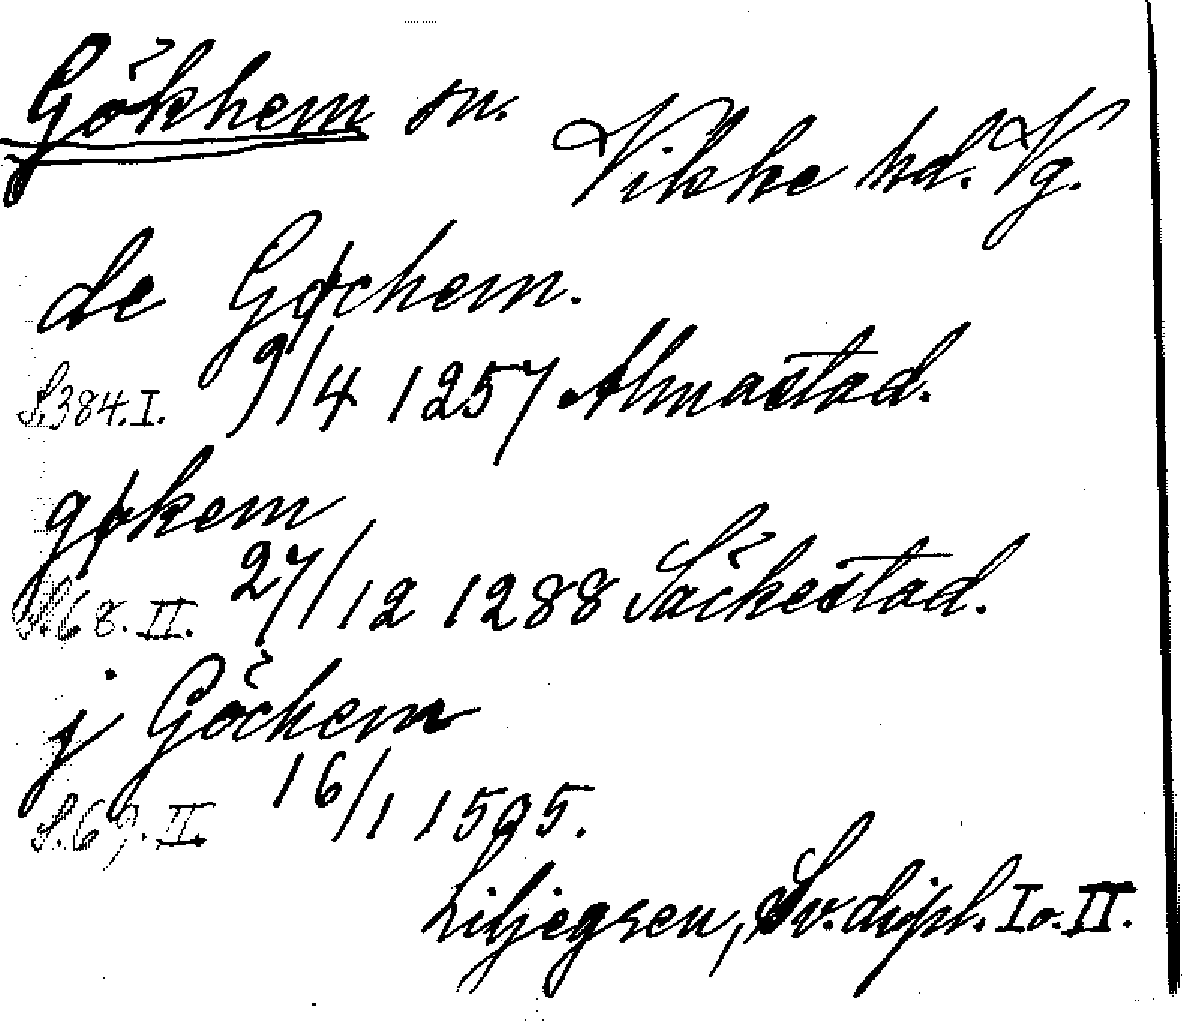 Gökhem sn.
Vilske hd. Vg.
de Gøchem.
S.384.I. 9/4 1257 Almastad.
gøkem
S.68.II. 27/12 1288 Säckestad.
j Göchem
S.69.II. 16/1 1505.
Liljegren, Sv. dipl. I o. II.